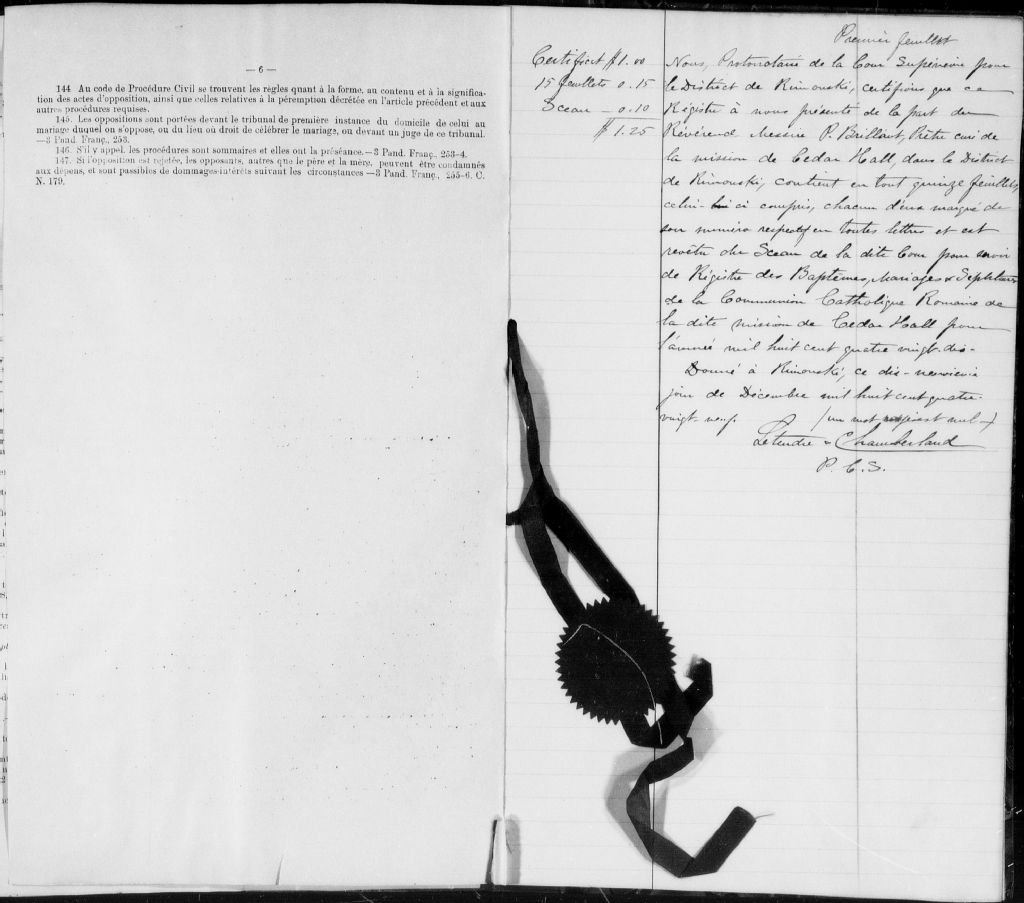 — 6 —
144 Au code de Procédure Civil se trouvent les règles quant à la forme, au contenu et à la significa-
tion des actes d'opposition, ainsi que celles relatives à la péremption décrétée en l'article précédent et aux
autres procédures requises.
145. Les oppositions sont portées devant le tribunal de première instance du domicile de celui au
mariage duquel on s'oppose, ou du lieu où droit de célébrer le mariage, ou devant un juge de ce tribunal.
—3 Pand. Franç., 253.
146. S'il y appel, les procédures sont sommaires et elles ont la préséance.—3 Pand. Franç., 253-4.
147. Si l'opposition est rejetée, les opposants, autres que le père et la mère, peuvent être condamnés
aux dépens, et sont passibles de dommages-intérêts suivant les circonstances—3 Pand. Franç., 255-6. C.
N. 179.
Certificat $1.00
15 feuillets 0.15
Sceau — 0.10
$1.25
Premier feuillet
Nous, Protonotaire de la Cour Supérieure pour
le District de Rimouski, certifions que ce
Régistre à nous présenté de la part du
Révérend Messire P. Brillant, Prêtre curé de
la mission de Cedar Hall, dans le District
de Rimouski, contient en tout quinze feuillets,
celui-ci compris, chacun d'eux marqué de
son numéro respectif en toutes lettres et est
revêtu du Sceau de la dite Cour pour servir
de Régistre des Baptêmes, Mariages & Sépultures
de la Communion Catholique Romaine de
la dite mission de Cedar Hall pour
l'année mil huit cent quatre vingt-dix-
Donné à Rimouski, ce dix-neuvième
jour de Décembre mil huit cent quatre-
vingt-neuf. (un mot est nul-)
Letendre & Chamberland
P. C. S.